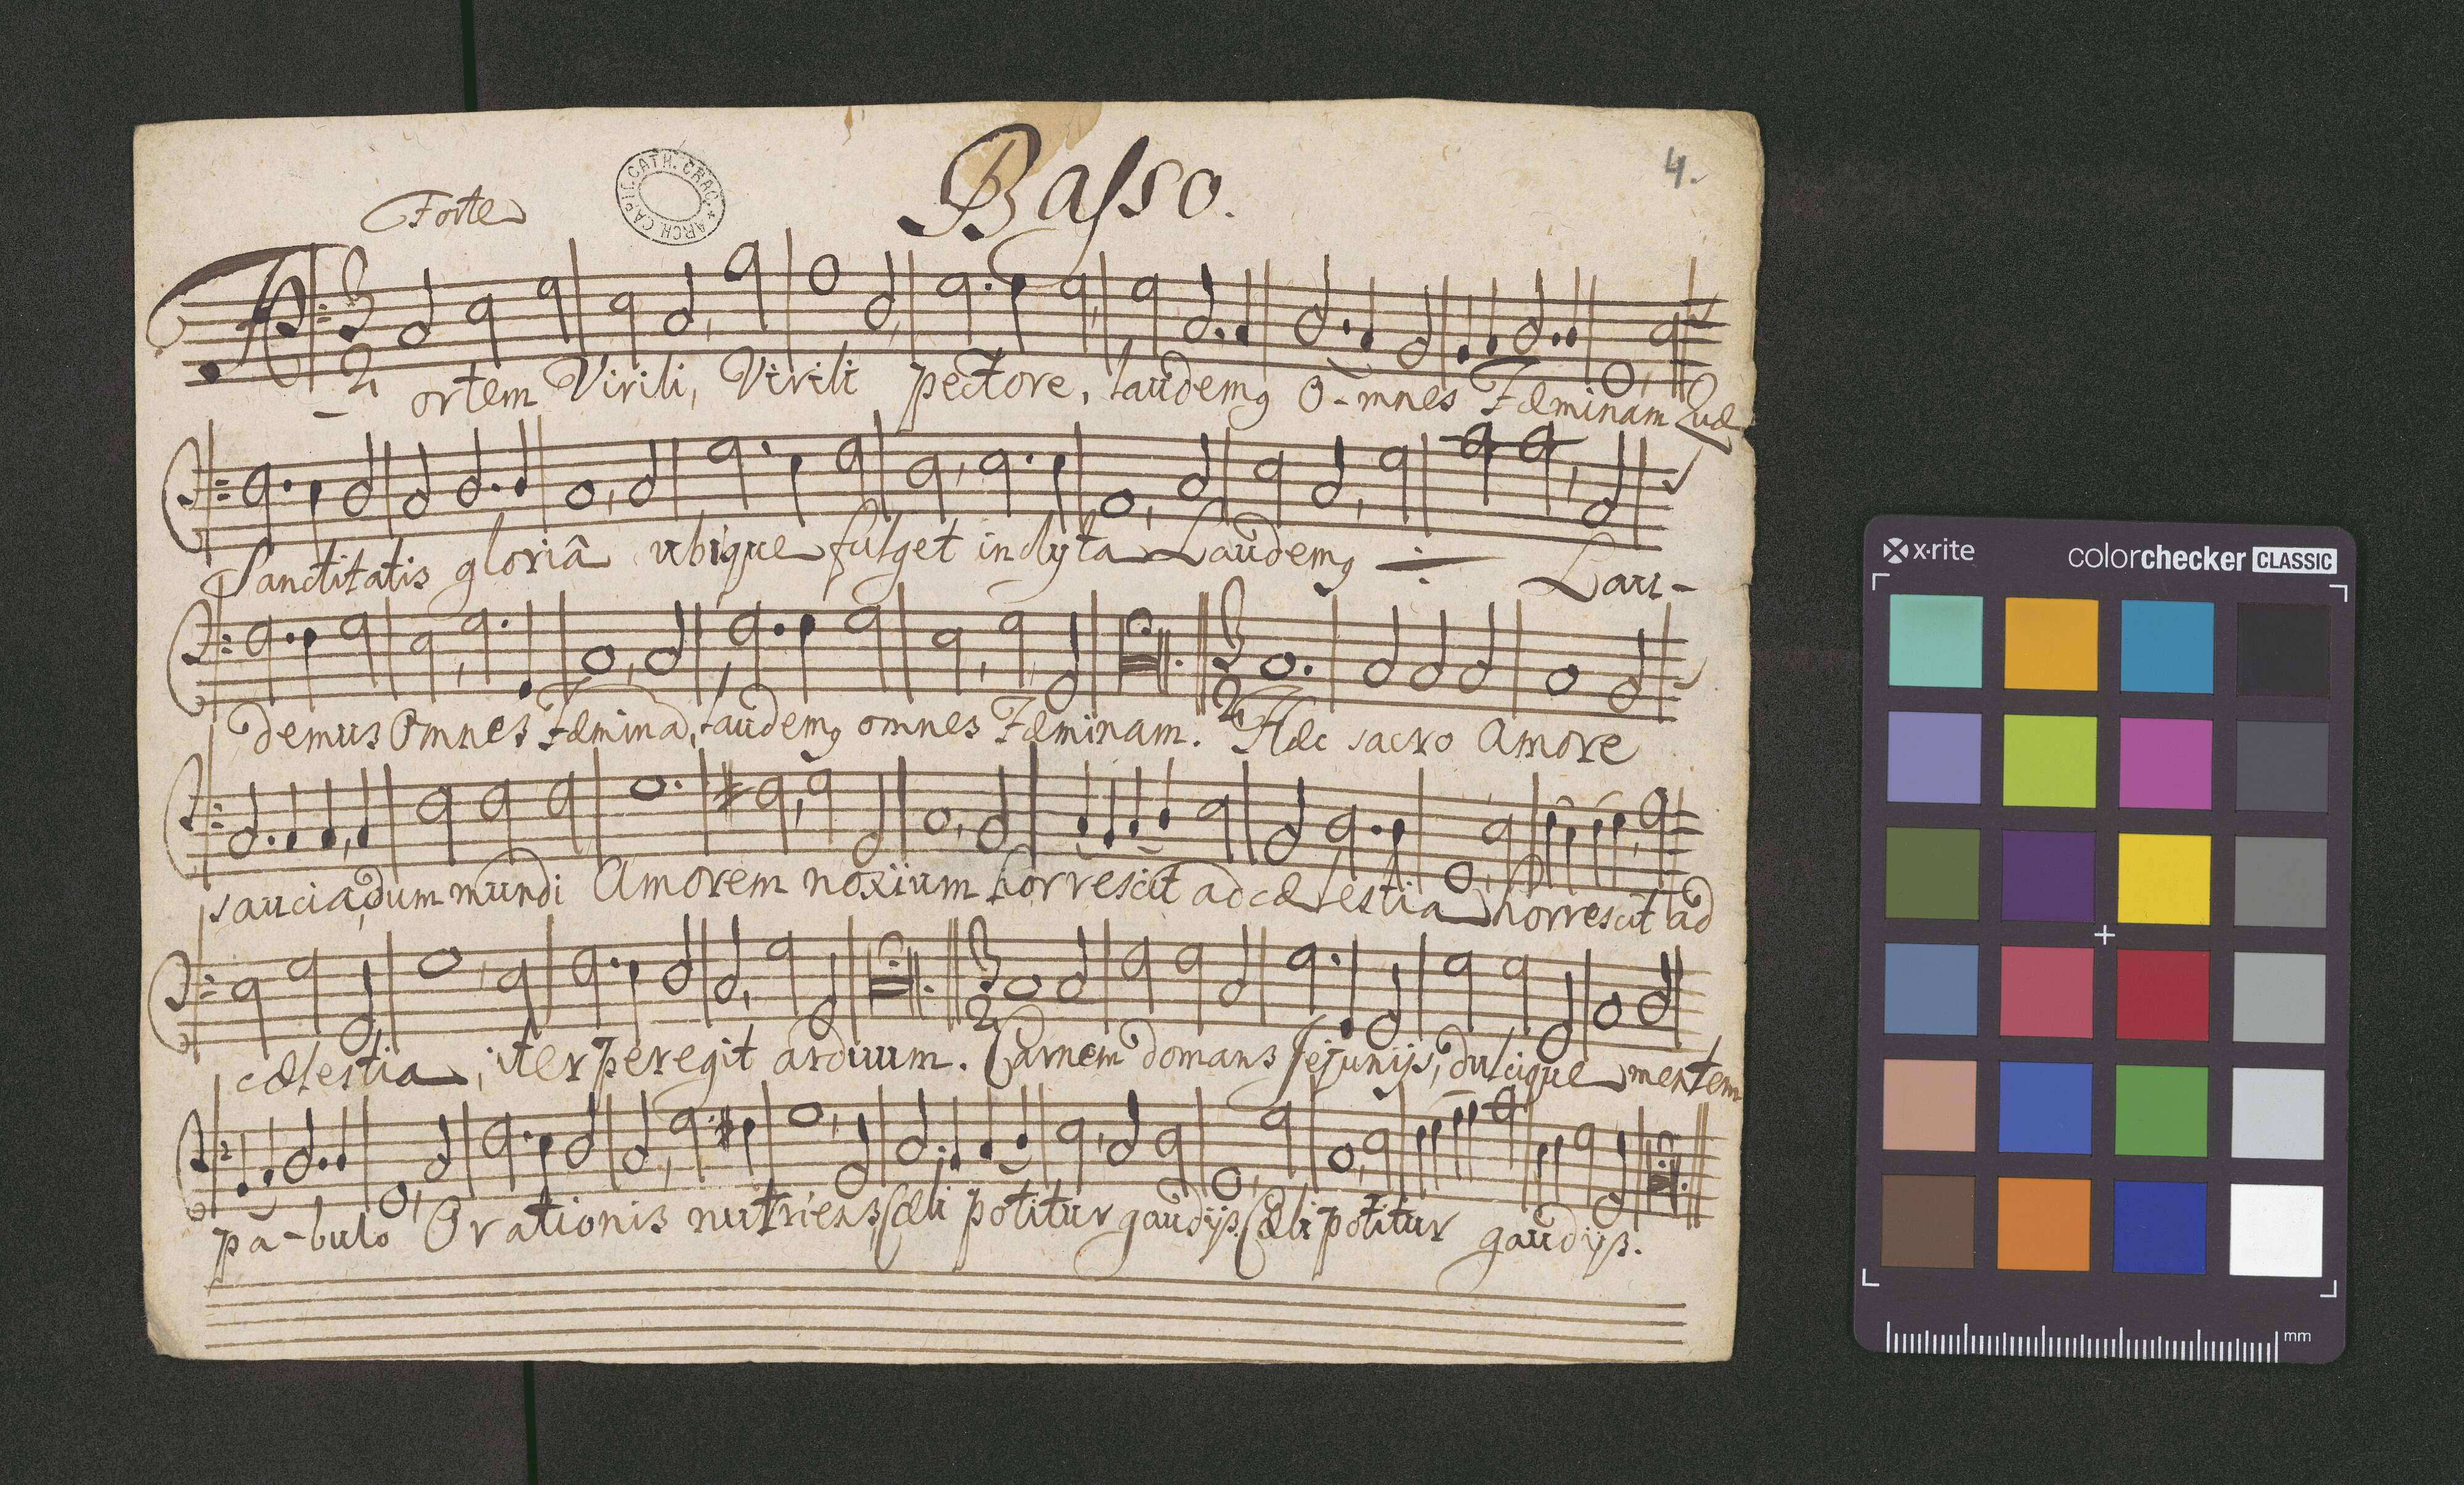 Basso.
4.
Forte
ARCH. CAPIT. CATH. CRAC.
Fortem Virili, Virili pectore, laudemq O-mnes Fæminam Quæ
Sanctitatis gloriâ ubique fulget inclyta Laudemq ÷ Lau-
demus Omnes Fæminā, laudemq omnes Fæminam. Hæc sacro Amore
saucia, dum mundi Amorem noxium horrescit ad cælestia horrescit ad
cælestia, iter peregit arduum. Carnem domans Jejunijs, dulcique mentem
pa-bulo Orationis nutriens, Cæli potitur gaudijs. Cæli potitur gaudijs.
x·rite
colorchecker CLASSIC
mm